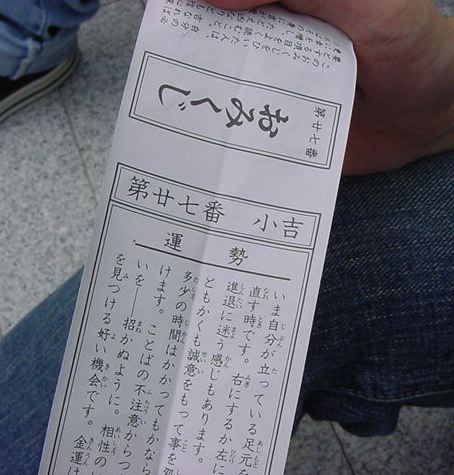 第廿七番
おみくじ
第廿七番 小吉
運勢
いま自分が立っている足元を
直す時です。右にするか左に
進退に迷う感じもあります。
ともかくも誠意をもって事を処
多少の時間はかかってもかなら
けます。ことばの不注意からつ
いを──招かぬように。相性の
を見つける好い機会です。金運は